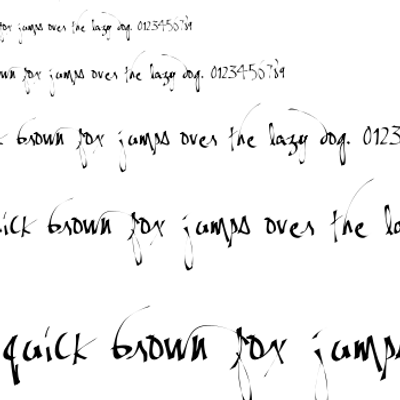 fox jumps over the lazy dog. 0123456789
own fox jumps over the lazy dog. 0123456789
k brown fox jumps over the lazy dog. 0123
ick brown fox jumps over the la
quick brown fox jumps